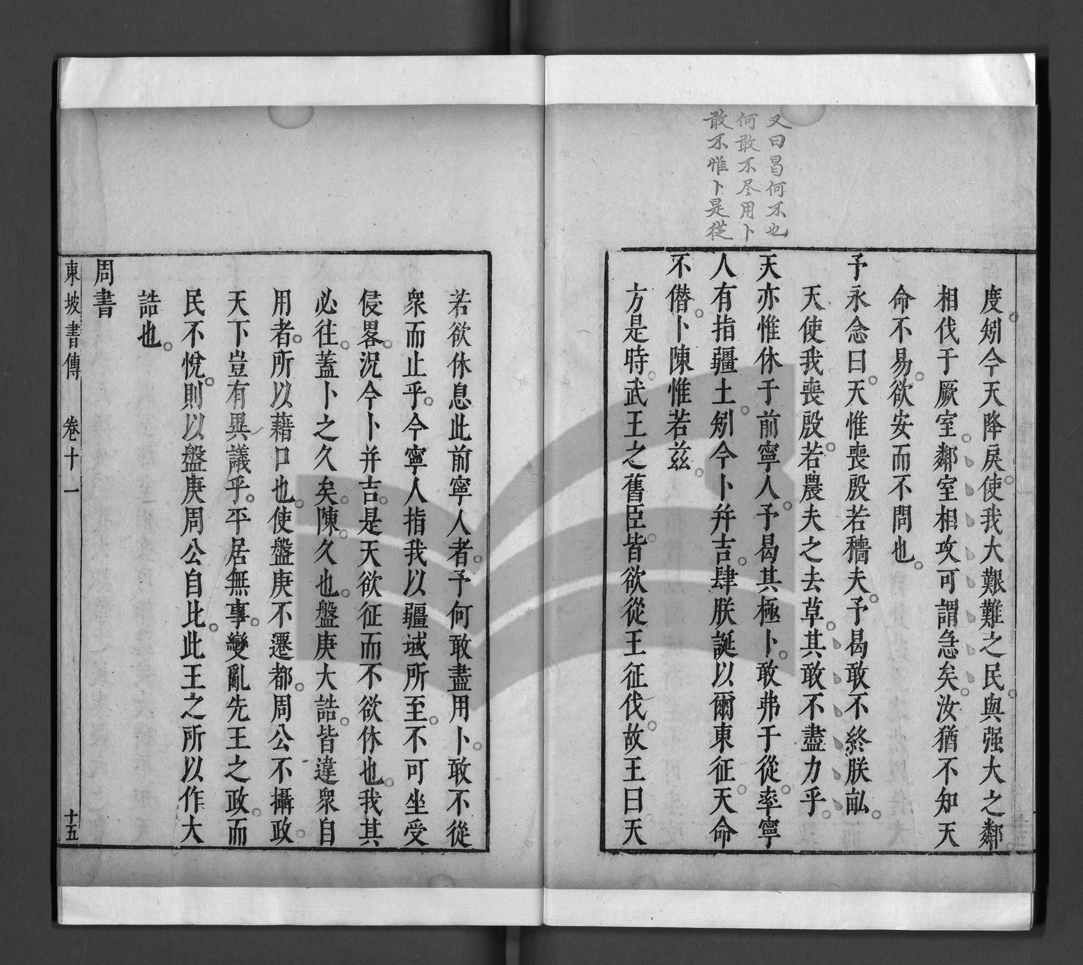 又曰曷何不也
何敢不尽用卜
敢不惟卜是從
度矧今天降戾使我大艱難之民與强大之鄰
相伐于厥室鄰室相攻可謂急矣汝猶不知天
命不易欲安而不問也
予永念曰天惟喪殷若穡夫予曷敢不終朕畝
天使我喪殷若農夫之去草其敢不盡力乎
天亦惟休于前寧人予曷其極卜敢弗于從率寧
人有指疆土矧今卜并吉肆朕誕以爾東征天命
不僭卜陳惟若茲
方是時武王之舊臣皆欲從王征伐故王曰天
若欲休息此前寧人者予何敢盡用卜敢不從
衆而止乎今寧人指我以疆域所至不可坐受
侵畧況今卜并吉是天欲征而不欲休也我其
必往蓋卜之久矣陳久也盤庚大誥皆違衆自
用者所以藉口也使盤庚不遷都周公不攝政
天下豈有異議乎平居無事變亂先王之政而
民不悅則以盤庚周公自比此王之所以作大
誥也
周書
東坡書傳 卷十一 十五